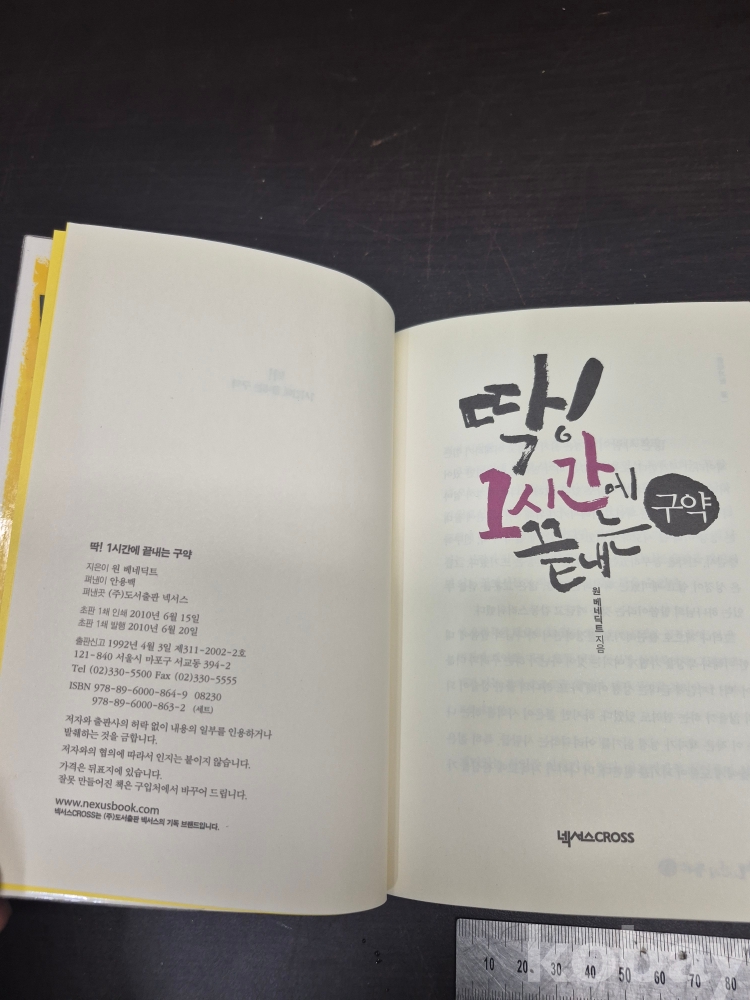 딱! 1시간에 끝내는 구약
지은이 원 베네딕트
펴낸이 안용백
펴낸곳 (주)도서출판 넥서스
초판 1쇄 인쇄 2010년 6월 15일
초판 1쇄 발행 2010년 6월 20일
출판신고 1992년 4월 3일 제311-2002-2호
121-840 서울시 마포구 서교동 394-2
Tel (02)330-5500 Fax (02)330-5555
ISBN 978-89-6000-864-9 08230
978-89-6000-863-2 (세트)
저자와 출판사의 허락 없이 내용의 일부를 인용하거나
발췌하는 것을 금합니다.
저자와의 협의에 따라서 인지는 붙이지 않습니다.
가격은 뒤표지에 있습니다.
잘못 만들어진 책은 구입처에서 바꾸어 드립니다.
www.nexusbook.com
넥서스CROSS는 (주)도서출판 넥서스의 기독 브랜드입니다.
딱!
1시간에
끝내는
구약
원 베네딕트 지음
넥서스CROSS
10 20 30 40 50 60 70 80